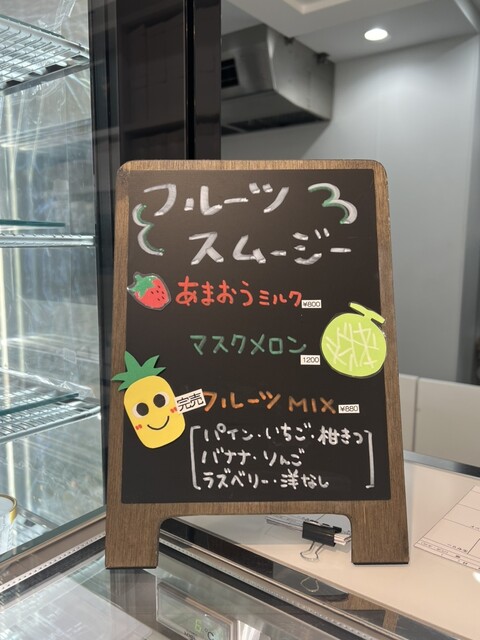 フルーツ
スムージー
あまおうミルク ¥800
マスクメロン 1200
完売 フルーツMIX ¥880
パイン・いちご・柑きつ
バナナ・りんご
ラズベリー・洋なし